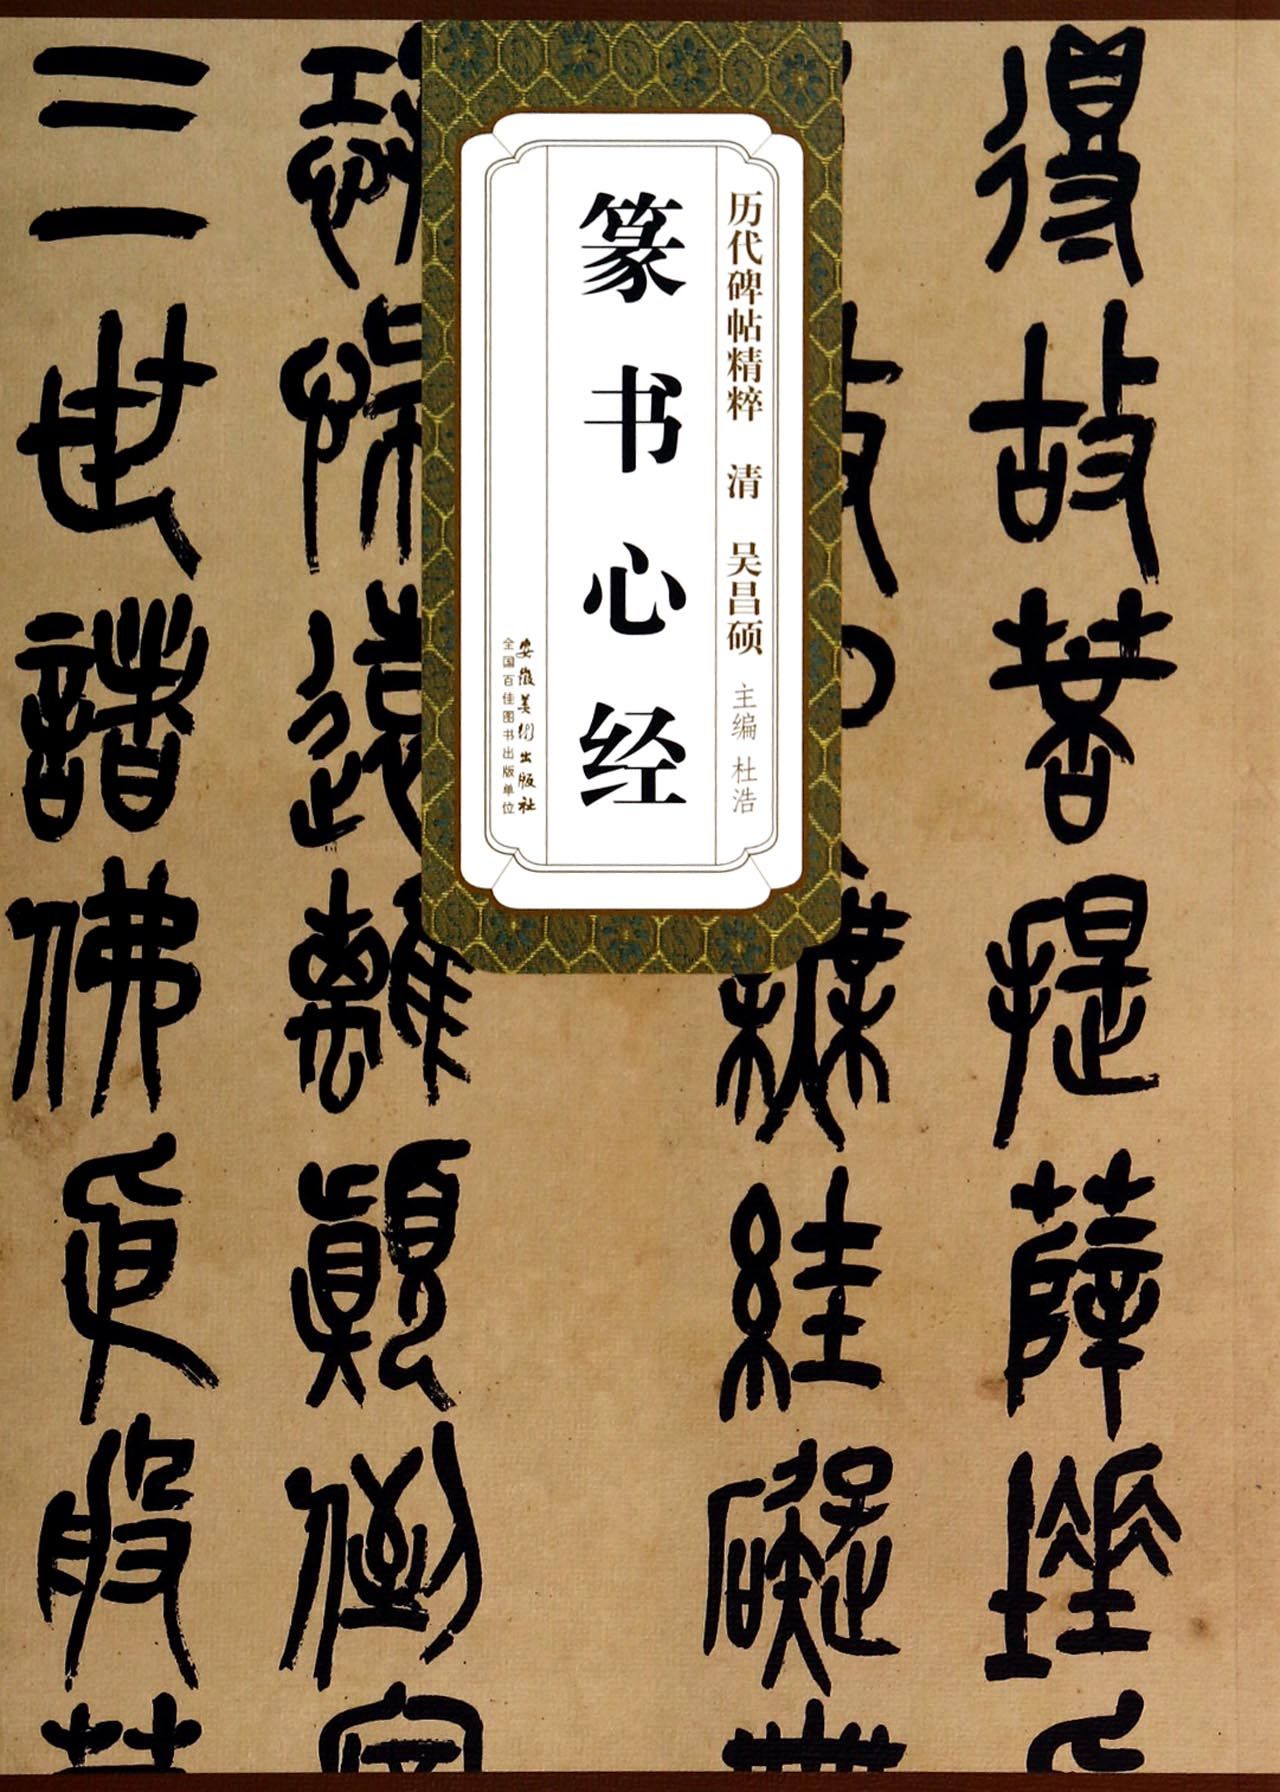 得故菩提薩埵
無罣礙
历代碑帖精粹 清 吴昌硕 主编 杜浩
篆书心经
安徽美术出版社
全国百佳图书出版单位
恐怖遠離顛倒
三世諸佛依般若